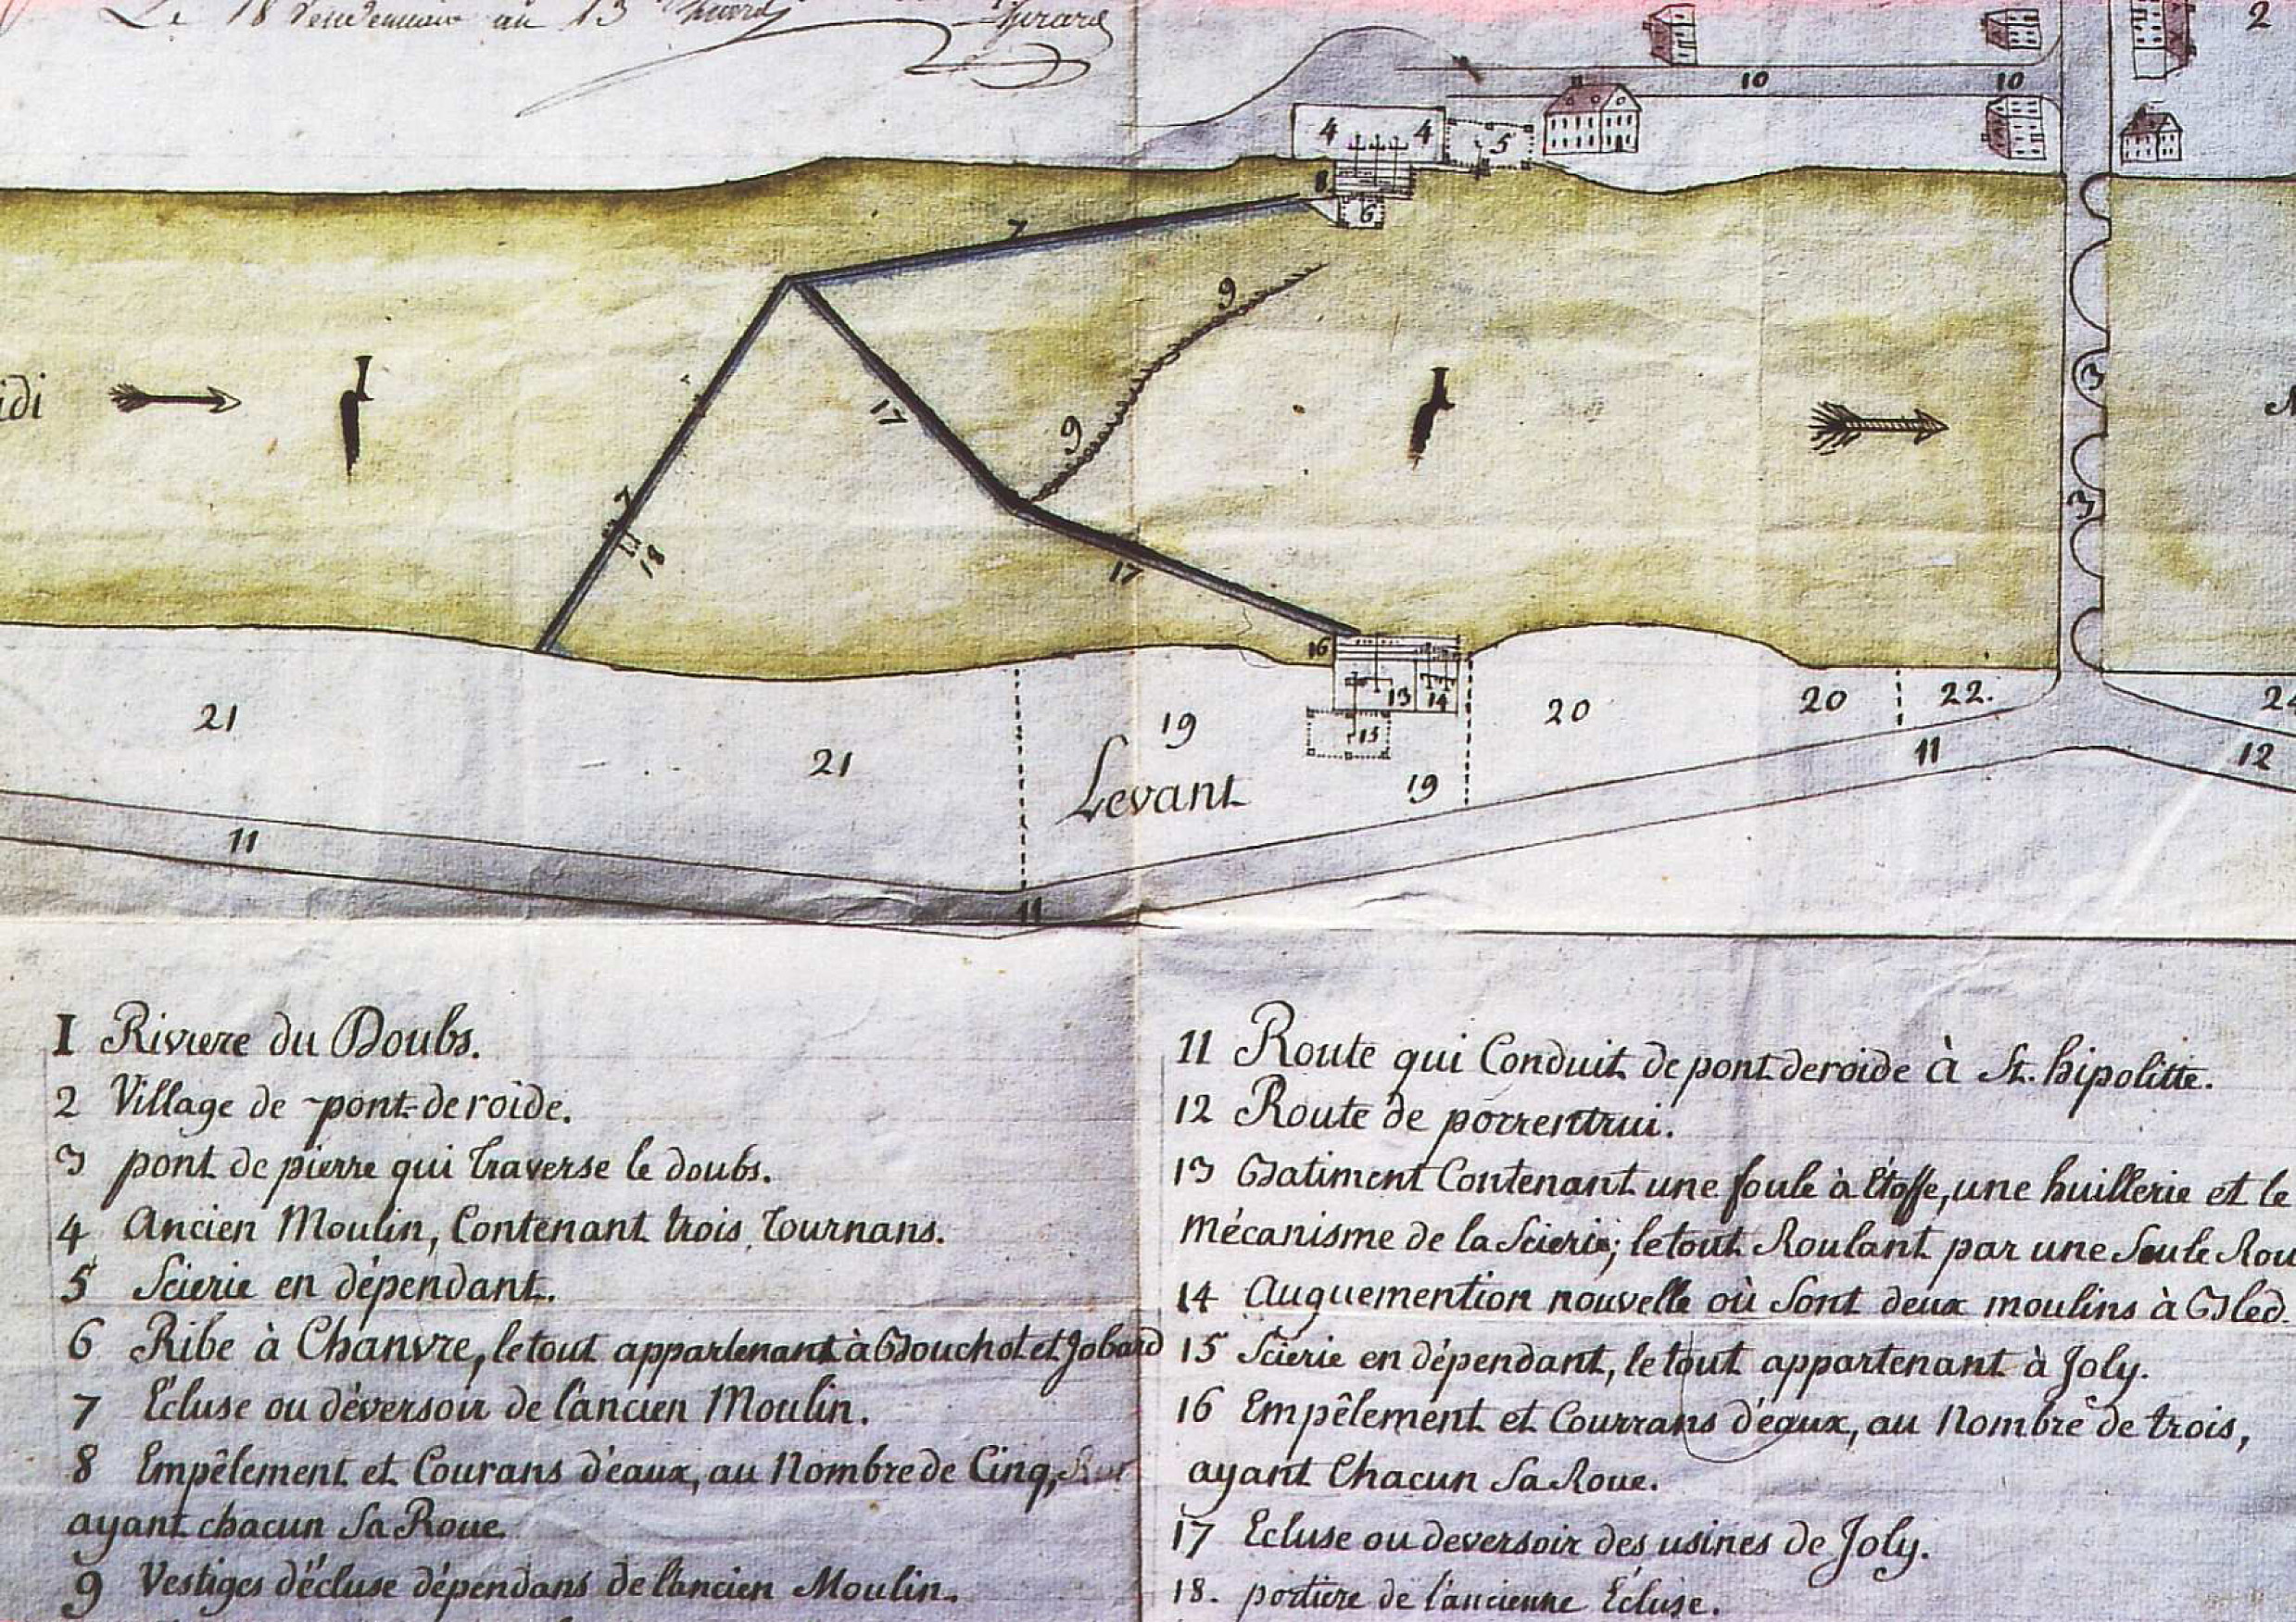 Le 18 Vendemiaire an 13
2
10
10
4
4
5
8
6
7
9
9
17
17
7
18
idi
1
1
3
3
16
13
14
15
21
21
19
19
20
20
22.
11
11
11
12
Levant
1 Riviere du Doubs.
2 Village de pont-de roide.
3 pont de pierre qui traverse le doubs.
4 Ancien Moulin, Contenant trois Tournans.
5 Scierie en dépendant.
6 Ribe à Chanvre, le tout appartenant à Bouchot et Jobard
7 Ecluse ou déversoir de l'ancien Moulin.
8 Empêlement et Courans d'eaux, au Nombre de Cinq,
ayant chacun Sa Roue
9 Vestiges d'écluse dépendans de l'ancien Moulin.
11 Route qui Conduit de pont de roide à St. hipolitte.
12 Route de porrentrui.
13 Batiment Contenant une foule à Etoffe, une huillerie et le
Mécanisme de la Scierie; le tout Roulant par une Seule Rou
14 Auguemention nouvelle où Sont deux moulins à Bled.
15 Scierie en dépendant, le tout appartenant à Joly.
16 Empêlement et Courrans d'eaux, au Nombre de trois,
ayant Chacun Sa Roue.
17 Ecluse ou deversoir des usines de Joly.
18. portiere de l'ancienne Ecluse.